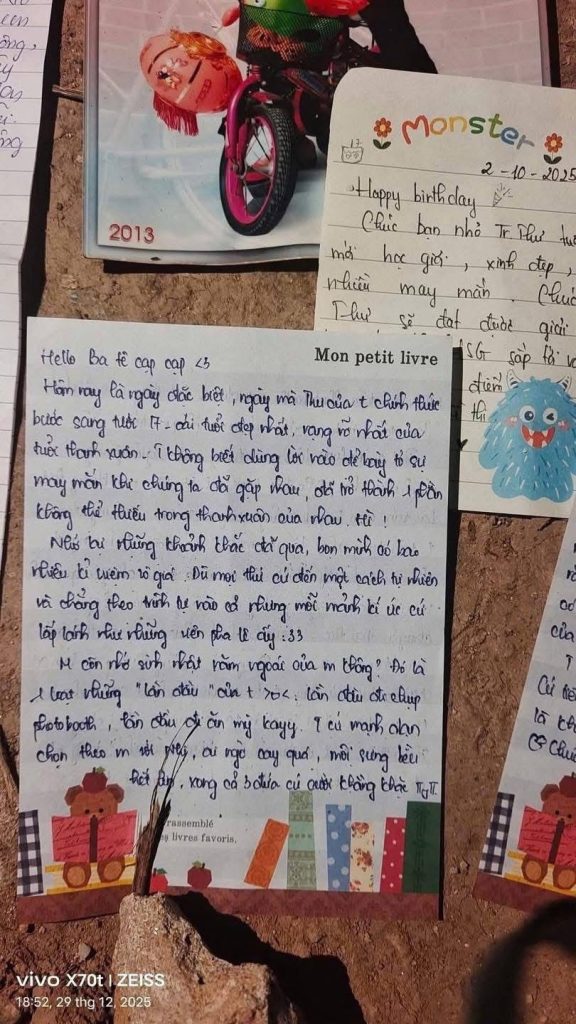 2013
Monster
17
2-10-2025
Happy birthday
Chúc bạn nhỏ Tr.Thư
mới học giỏi, xinh đẹp,
nhiều may mắn. Chúc
Thư sẽ đạt được giải
HSG sắp tới
điểm
thi
Mon petit livre
Hello Ba tê cạp cạp <3
Hôm nay là ngày đặc biệt, ngày mà Thư của t chính thức
bước sang tuổi 17 - cái tuổi đẹp nhất, rạng rỡ nhất của
tuổi thanh xuân. T không biết dùng lời nào để bày tỏ sự
may mắn khi chúng ta đã gặp nhau, đã trở thành 1 phần
không thể thiếu trong thanh xuân của nhau. Hì!
Nhớ lại những khoảnh khắc đã qua, bọn mình có bao
nhiêu kỉ niệm vô giá. Dù mọi thứ cứ đến một cách tự nhiên
và chẳng theo trình tự nào cả nhưng mỗi mảnh kí ức cứ
lấp lánh như những viên pha lê ấy :33
M còn nhớ sinh nhật năm ngoái của m không? Đó là
1 loạt những "lần đầu" của t >o<: lần đầu đi chụp
photobooth, lần đầu đi ăn mỳ kayy. T cứ mạnh dạn
chọn theo m rồi ai ngờ cay quá, môi sưng
hết lên, xong cả 3 đứa cứ cười khằng khặc
rassemblé
s livres favoris.
của
T
là
vivo X70t | ZEISS
18:52, 29 thg 12, 2025